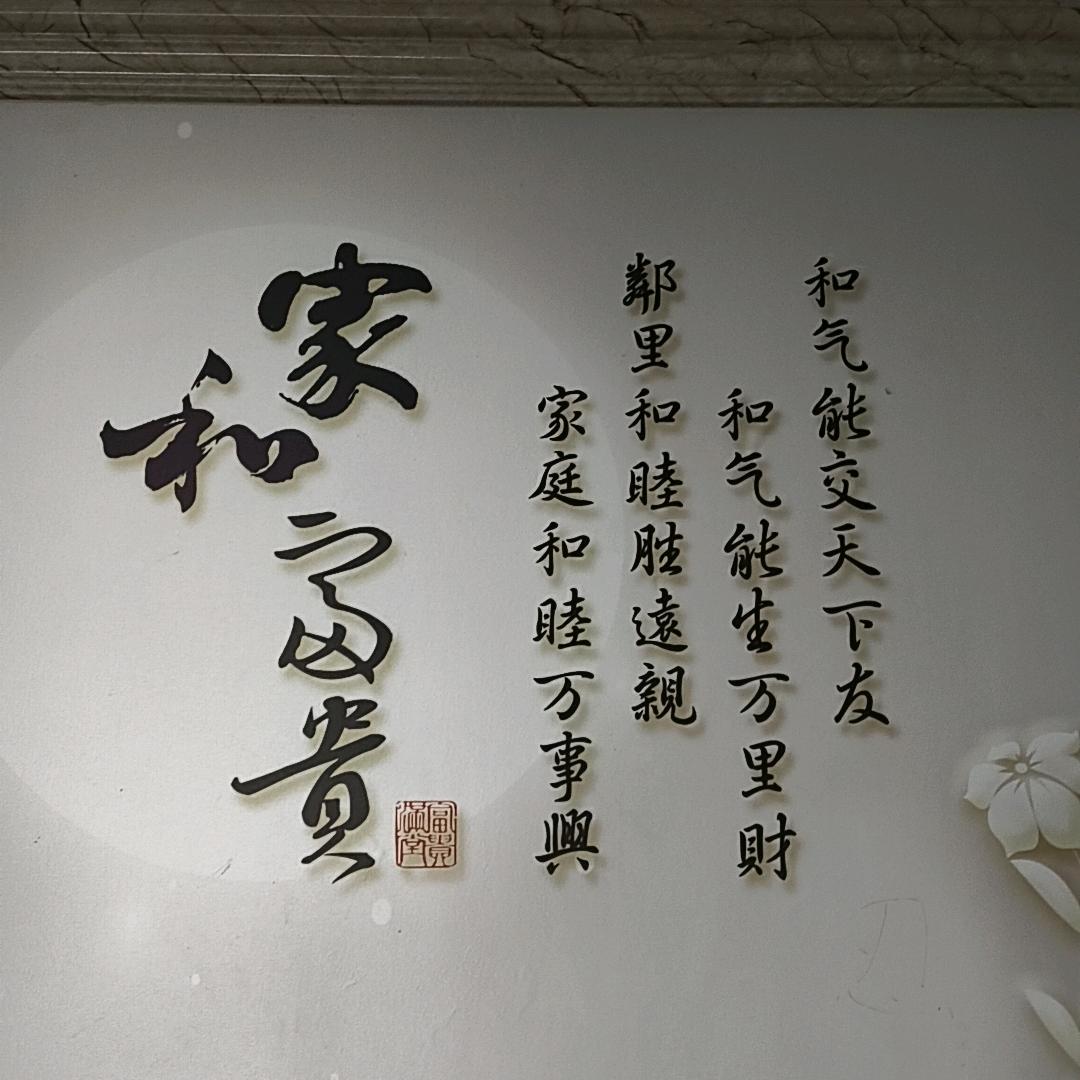 和气能交天下友
和气能生万里財
鄰里和睦胜遠親
家庭和睦万事興
家和富貴
富貴滿堂